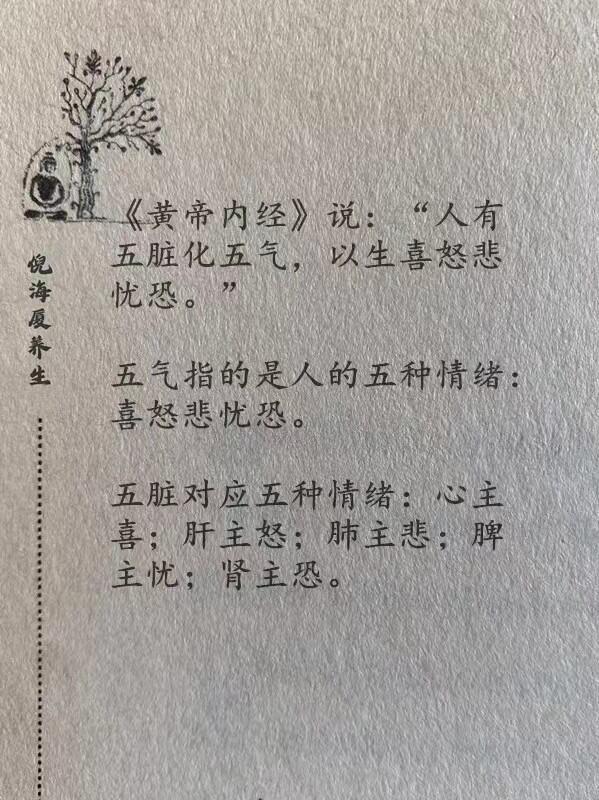 《黄帝内经》说：“人有
五脏化五气，以生喜怒悲
忧恐。”
五气指的是人的五种情绪：
喜怒悲忧恐。
五脏对应五种情绪：心主
喜；肝主怒；肺主悲；脾
主忧；肾主恐。
倪海厦养生